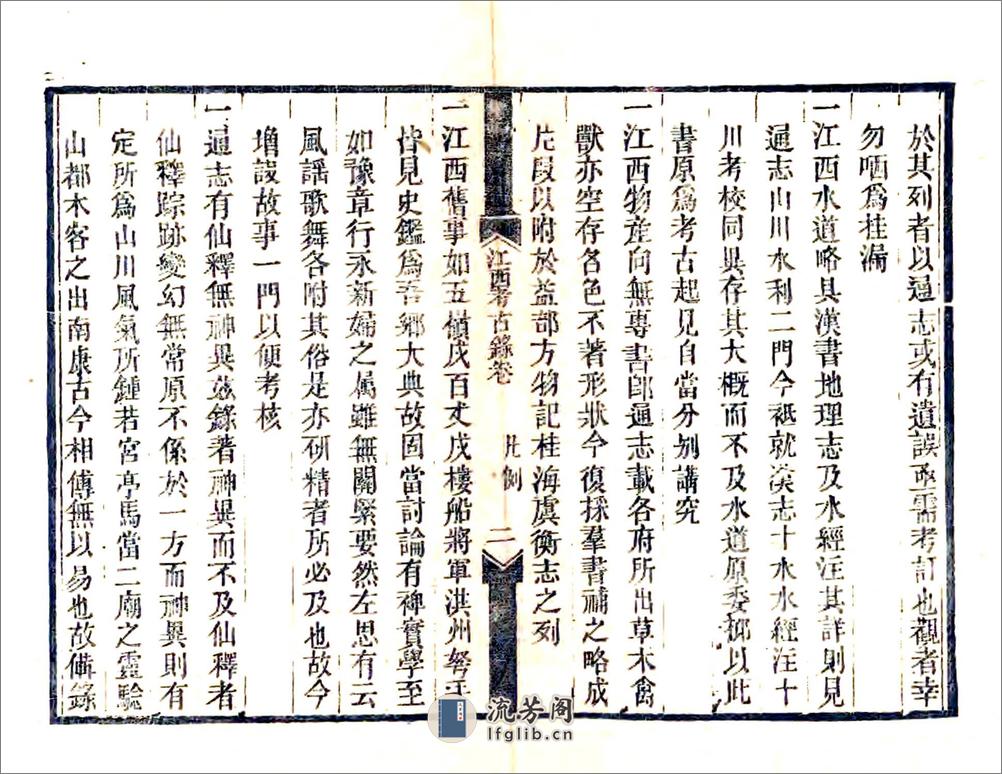 於其列者以通志或有遺誤亟需考訂也觀者幸
勿哂爲挂漏
一江西水道略具漢書地理志及水經注其詳則見
通志山川水利二門今袛就漢志十水水經注十
川考校同異存其大概而不及水道原委抑以此
書原爲考古起見自當分别講究
一江西物産向無專書卽通志載各府所出草木禽
獸亦空存各色不著形狀今復採羣書補之略成
片段以附於益部方物記桂海虞衡志之列
江西考古錄卷
凡例
二
一江西舊事如五嶺戍百丈戍樓船將軍洪州弩手
皆見史鑑爲吾鄉大典故固當討論有裨實學至
如豫章行永新婦之属雖無關緊要然左思有云
風謡歌舞各附其俗是亦研精者所必及也故今
增設故事一門以便考核
一通志有仙釋無神異兹錄著神異而不及仙釋者
仙釋踪跡變幻無常原不係於一方而神異則有
定所爲山川風氣所鍾若宮亭馬當二廟之靈驗
山都木客之出南康古今相傳無以易也故備錄
流芳阁
lfglib.cn